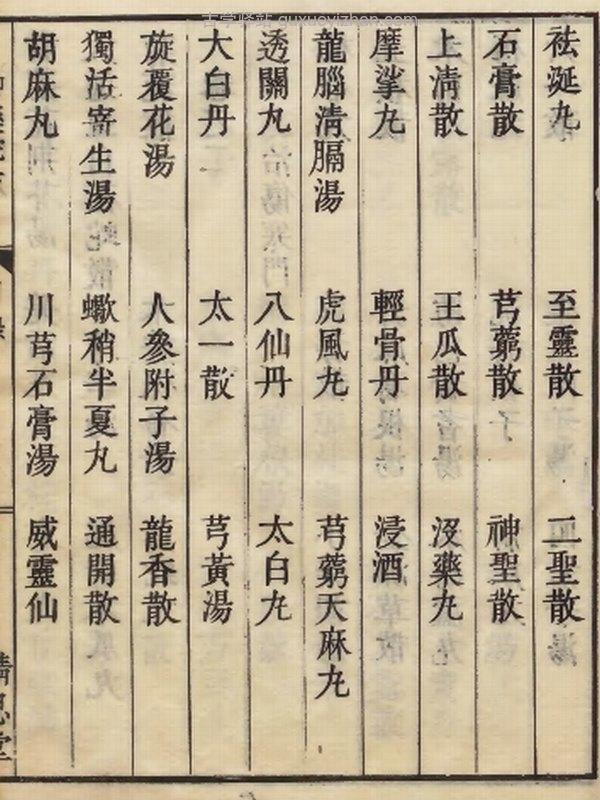 袪涎丸 至靈散 二聖散
石膏散 芎藭散 神聖散
上淸散 王瓜散 沒藥丸
摩挲丸 輕骨丹 浸酒
龍腦淸膈湯 虎風丸 芎藭天麻丸
透關丸 八仙丹 太白丸
大白丹 太一散 芎黃湯
旋覆花湯 人參附子湯 龍香散
獨活寄生湯 蠍稍半夏丸 通開散
胡麻丸 川芎石膏湯 威靈仙